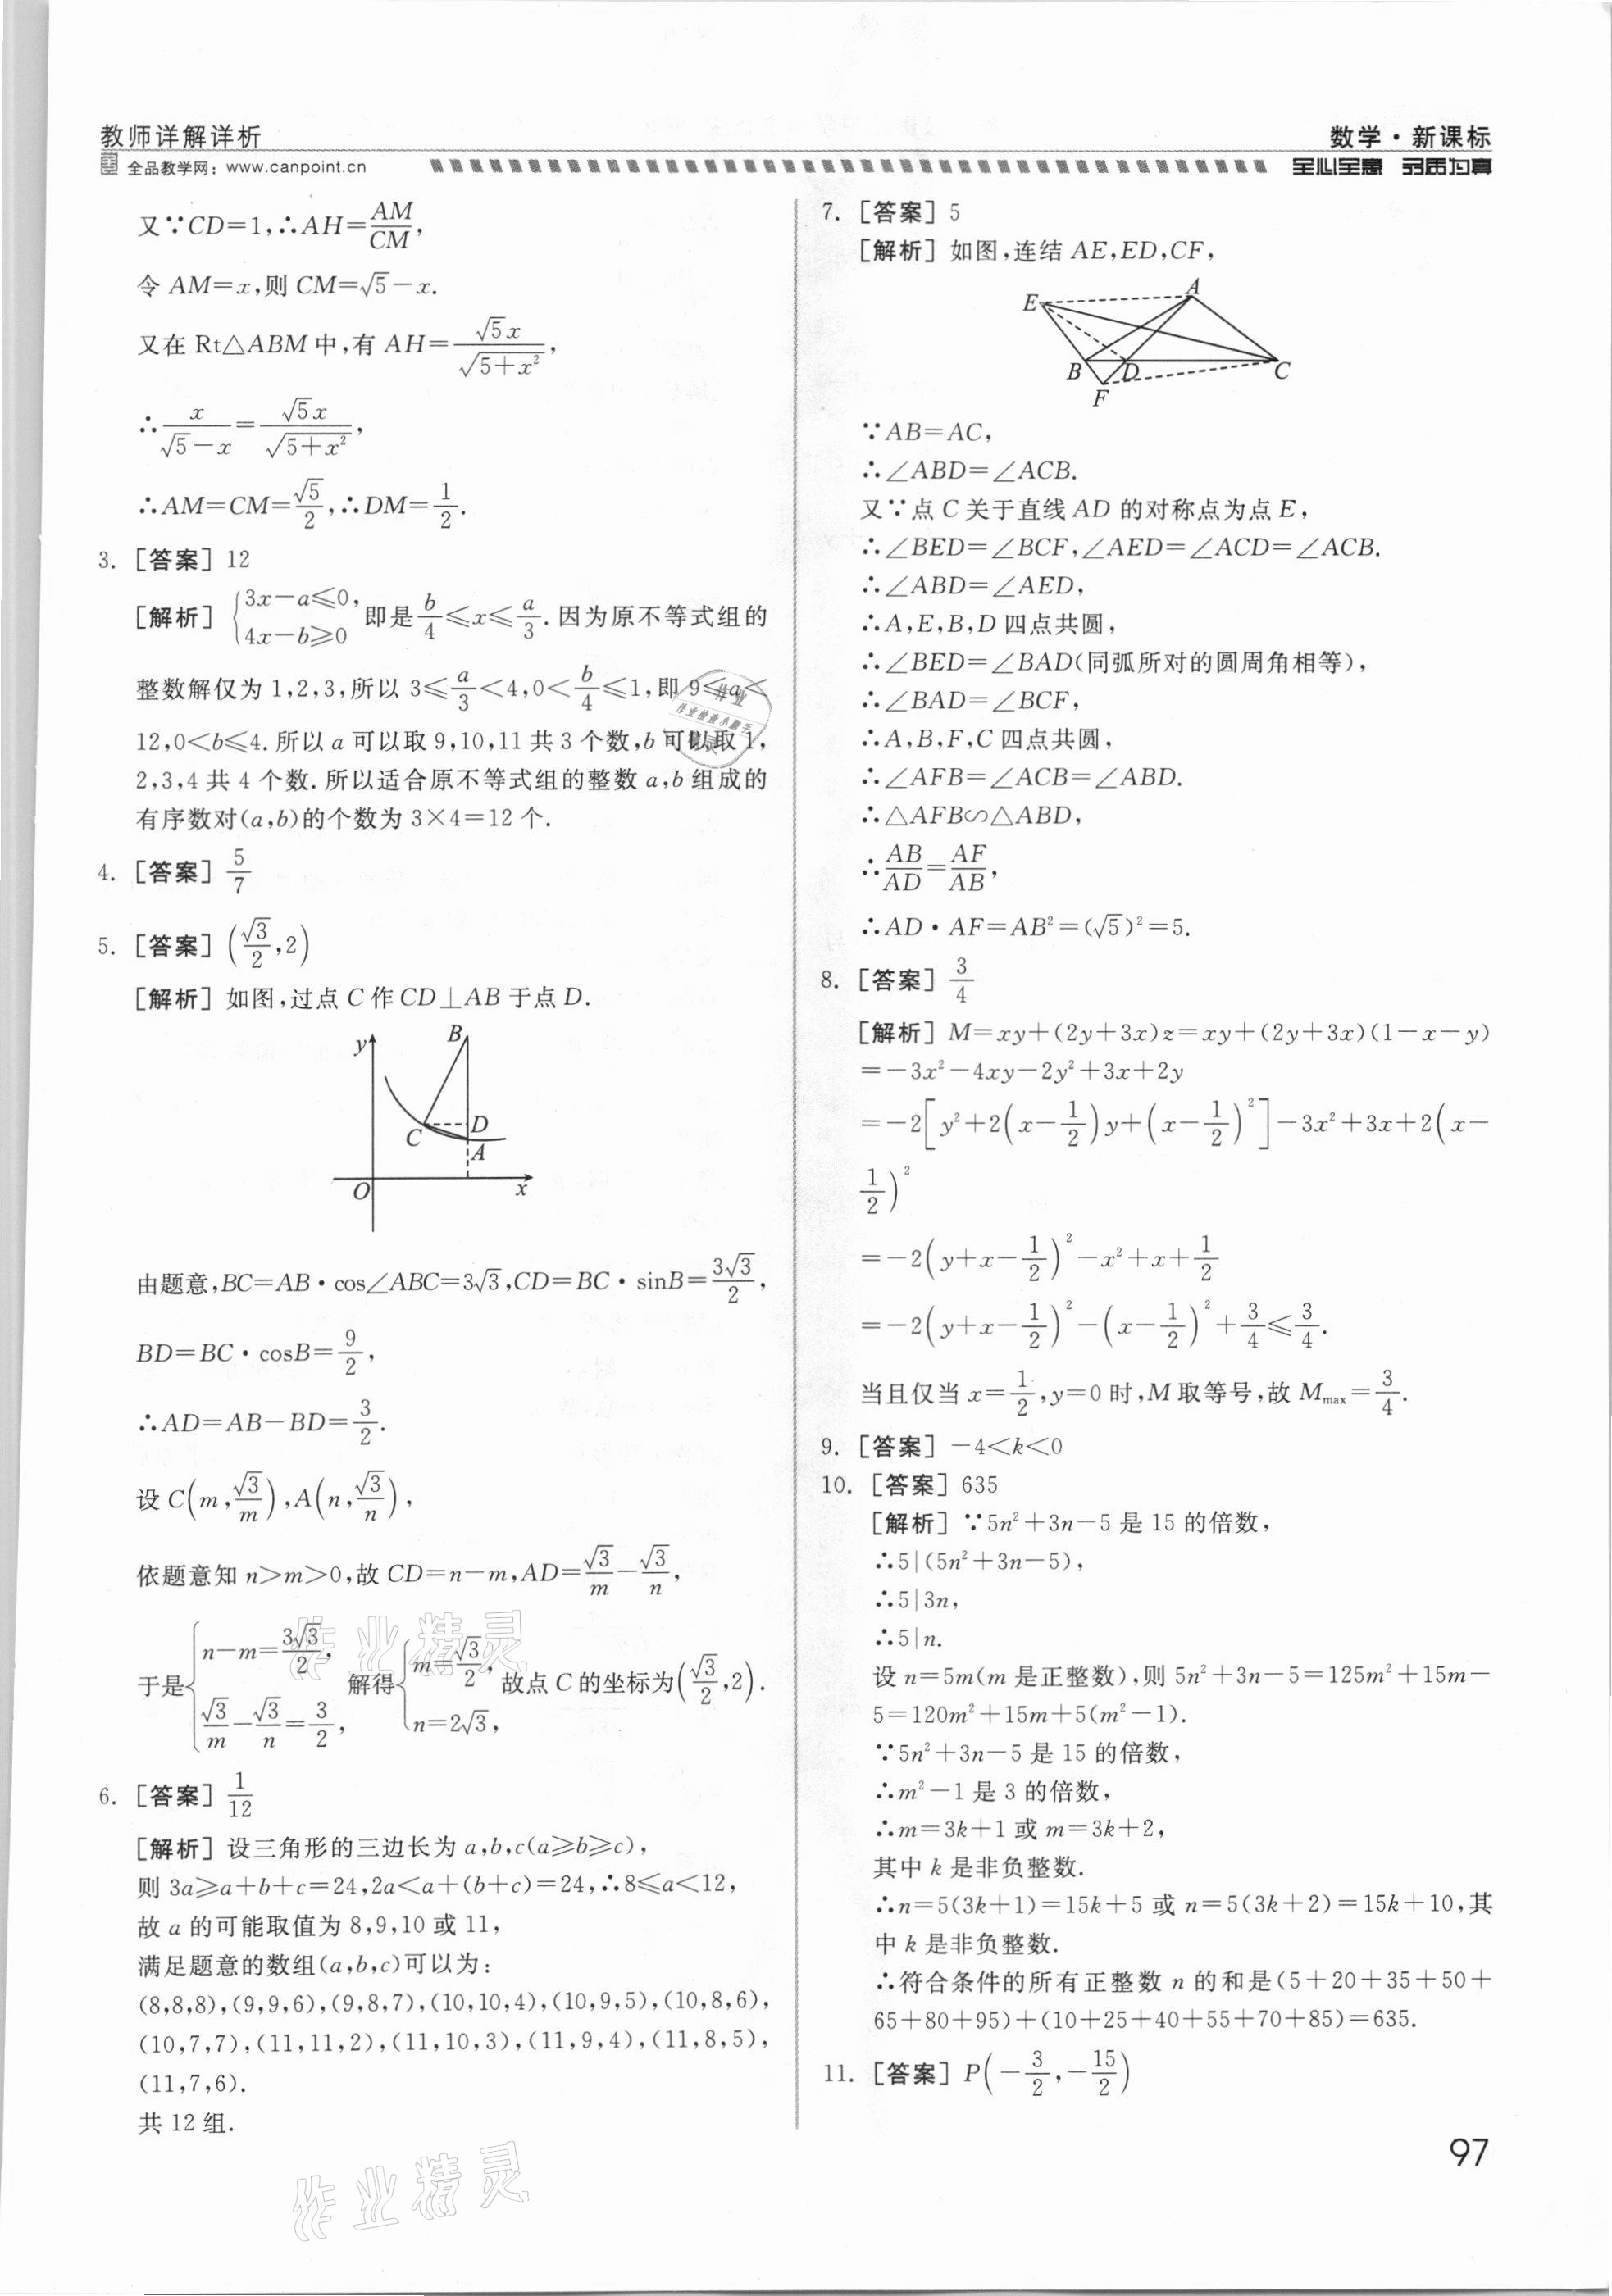 教师详解详析
数学·新课标
全品教学网：www.canpoint.cn
全心全意 多质为真
又∵CD=1,∴AH=AM/CM,
令 AM=x,则 CM=√5-x.
又在 Rt△ABM 中,有 AH=√5x/√(5+x²),
∴x/(√5-x)=√5x/√(5+x²),
∴AM=CM=√5/2,∴DM=1/2.
3. [答案] 12
[解析] {3x-a≤0, 4x-b≥0 即是 b/4≤x≤a/3.因为原不等式组的
整数解仅为 1,2,3,所以 3≤a/3<4,0<b/4≤1,即 9≤a<
12,0<b≤4.所以 a 可以取 9,10,11 共 3 个数,b 可以取 1,
2,3,4 共 4 个数.所以适合原不等式组的整数 a,b 组成的
有序数对(a,b)的个数为 3×4=12 个.
4. [答案] 5/7
5. [答案] (√3/2,2)
[解析] 如图,过点 C 作 CD⊥AB 于点 D.
y
B
C
D
A
O
x
由题意,BC=AB·cos∠ABC=3√3,CD=BC·sinB=3√3/2,
BD=BC·cosB=9/2,
∴AD=AB-BD=3/2.
设 C(m,√3/m),A(n,√3/n),
依题意知 n>m>0,故 CD=n-m,AD=√3/m-√3/n,
于是{n-m=3√3/2, √3/m-√3/n=3/2, 解得{m=√3/2, n=2√3, 故点 C 的坐标为(√3/2,2).
6. [答案] 1/12
[解析] 设三角形的三边长为 a,b,c(a≥b≥c),
则 3a≥a+b+c=24,2a<a+(b+c)=24,∴8≤a<12,
故 a 的可能取值为 8,9,10 或 11,
满足题意的数组(a,b,c)可以为:
(8,8,8),(9,9,6),(9,8,7),(10,10,4),(10,9,5),(10,8,6),
(10,7,7),(11,11,2),(11,10,3),(11,9,4),(11,8,5),
(11,7,6).
共 12 组.
7. [答案] 5
[解析] 如图,连结 AE,ED,CF,
E
A
B
D
C
F
∵AB=AC,
∴∠ABD=∠ACB.
又∵点 C 关于直线 AD 的对称点为点 E,
∴∠BED=∠BCF,∠AED=∠ACD=∠ACB.
∴∠ABD=∠AED,
∴A,E,B,D 四点共圆,
∴∠BED=∠BAD(同弧所对的圆周角相等),
∴∠BAD=∠BCF,
∴A,B,F,C 四点共圆,
∴∠AFB=∠ACB=∠ABD.
∴△AFB∽△ABD,
∴AB/AD=AF/AB,
∴AD·AF=AB²=(√5)²=5.
8. [答案] 3/4
[解析] M=xy+(2y+3x)z=xy+(2y+3x)(1-x-y)
=-3x²-4xy-2y²+3x+2y
=-2[y²+2(x-1/2)y+(x-1/2)²]-3x²+3x+2(x-
1/2)²
=-2(y+x-1/2)²-x²+x+1/2
=-2(y+x-1/2)²-(x-1/2)²+3/4≤3/4.
当且仅当 x=1/2,y=0 时,M 取等号,故 Mmax=3/4.
9. [答案] -4<k<0
10. [答案] 635
[解析] ∵5n²+3n-5 是 15 的倍数,
∴5|(5n²+3n-5),
∴5|3n,
∴5|n.
设 n=5m(m 是正整数),则 5n²+3n-5=125m²+15m-
5=120m²+15m+5(m²-1).
∵5n²+3n-5 是 15 的倍数,
∴m²-1 是 3 的倍数,
∴m=3k+1 或 m=3k+2,
其中 k 是非负整数.
∴n=5(3k+1)=15k+5 或 n=5(3k+2)=15k+10,其
中 k 是非负整数.
∴符合条件的所有正整数 n 的和是(5+20+35+50+
65+80+95)+(10+25+40+55+70+85)=635.
11. [答案] P(-3/2,-15/2)
作业精灵
作业检查小助手
作业精灵
作业精灵
97